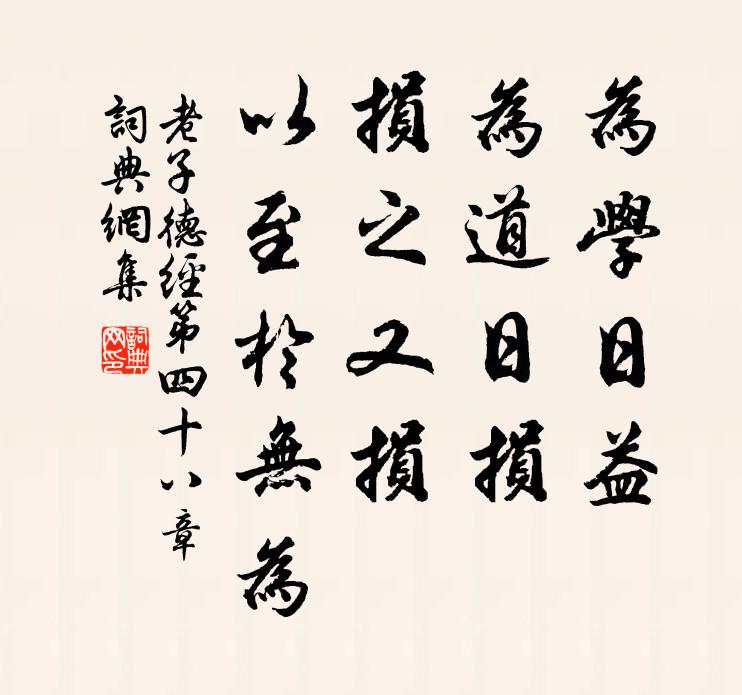 為學日益
為道日損
損之又損
以至於無為
老子德經第四十八章
詞典網集
詞典网印